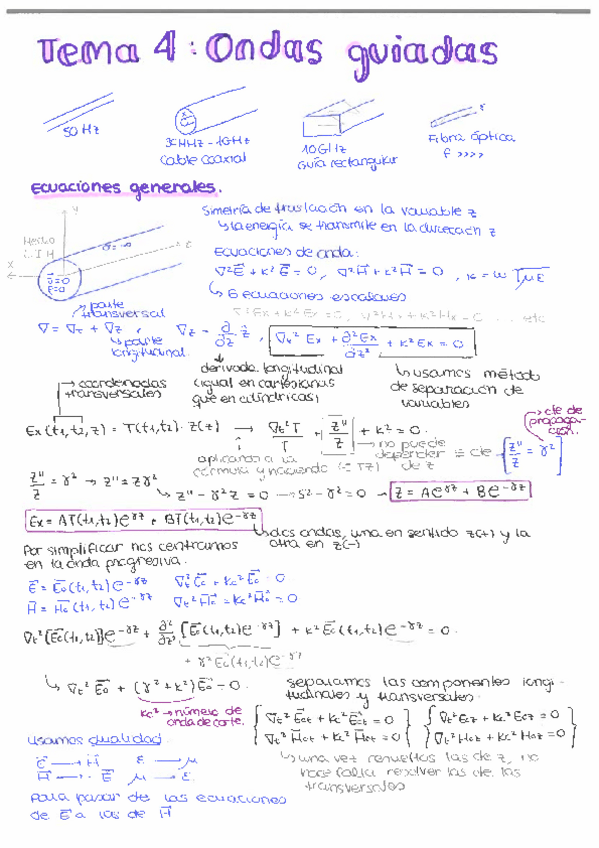 Tema 4: Ondas guiadas
50 Hz
Cable coaxial
10GHz
Guía rectangular
Fibra óptica
f >>>>
Ecuaciones generales.
Simetría de traslación en la variable z
↳ la energía se transmite en la dirección z
Medio
L I H
y
x
z
σ=∞
Ecuaciones de onda:
∇²E⃗ + K²E⃗ = 0, ∇²H⃗ + K²H⃗ = 0, K = ω√με
↳ 6 ecuaciones escalares
∇²Ex + K²Ex = 0, ∇²Hx + K²Hx = 0 ... etc
parte transversal
∇ = ∇t + ∇z, ∇z = ∂/∂z ẑ, ∇t²Ex + ∂²Ex/∂z² + K²Ex = 0
↳ parte longitudinal
derivada longitudinal (igual en cartesianas que en cilíndricas)
↳ usamos método de separación de variables
coordenadas transversales
Ex(t1,t2,z) = T(t1,t2)·Z(z) → ∇t²T/T + Z''/Z + K² = 0.
aplicando a la fórmula y haciendo (÷TZ)
no puede depender de z ≡ cte
Z''/Z = γ²
cte de propagación.
Z''/Z = γ² → Z'' = Zγ²
↳ Z'' - γ²Z = 0 → S² - γ² = 0 → Z = Ae^γz + Be^-γz
Ex = AT(t1,t2)e^γz + BT(t1,t2)e^-γz
↳ dos ondas, una en sentido z(+) y la otra en z(-)
Por simplificar nos centramos
en la onda progresiva.
E⃗ = E⃗o(t1,t2)e^-γz ∇t²E⃗o + Kc²E⃗o = 0
H⃗ = H⃗o(t1,t2)e^-γz ∇t²H⃗o + Kc²H⃗o = 0
∇t²[E⃗o(t1,t2)]e^-γz + ∂²/∂z²[E⃗o(t1,t2)e^-γz] + K²E⃗o(t1,t2)e^-γz = 0.
+ γ²E⃗o(t1,t2)e^-γz
↳ ∇t²E⃗o + (γ² + K²)E⃗o = 0.
Kc² → número de onda de corte.
separamos las componentes longitudinales y transversales.
∇t²E⃗ot + Kc²E⃗ot = 0
∇t²H⃗ot + Kc²H⃗ot = 0
∇t²Eoz + Kc²Eoz = 0
∇t²Hoz + Kc²Hoz = 0
↳ una vez resueltas las de z, no
hace falta resolver las de las
transversales
Usamos dualidad
E⃗ → H⃗ ε → μ
H⃗ → -E⃗ μ → ε
Para pasar de las ecuaciones
de E⃗ a las de H⃗